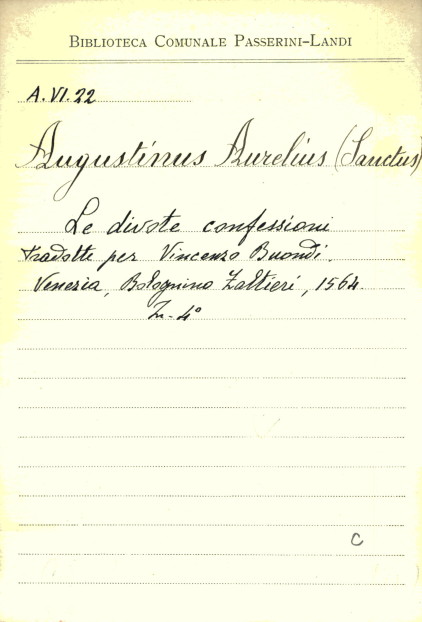 BIBLIOTECA COMUNALE PASSERINI-LANDI
A.VI.22
Augustinus Aurelius (Sanctus)
Le divote confessioni
tradotte per Vincenzo Buondi.
Venezia, Bolognino Zaltieri, 1564.
In-4°
C